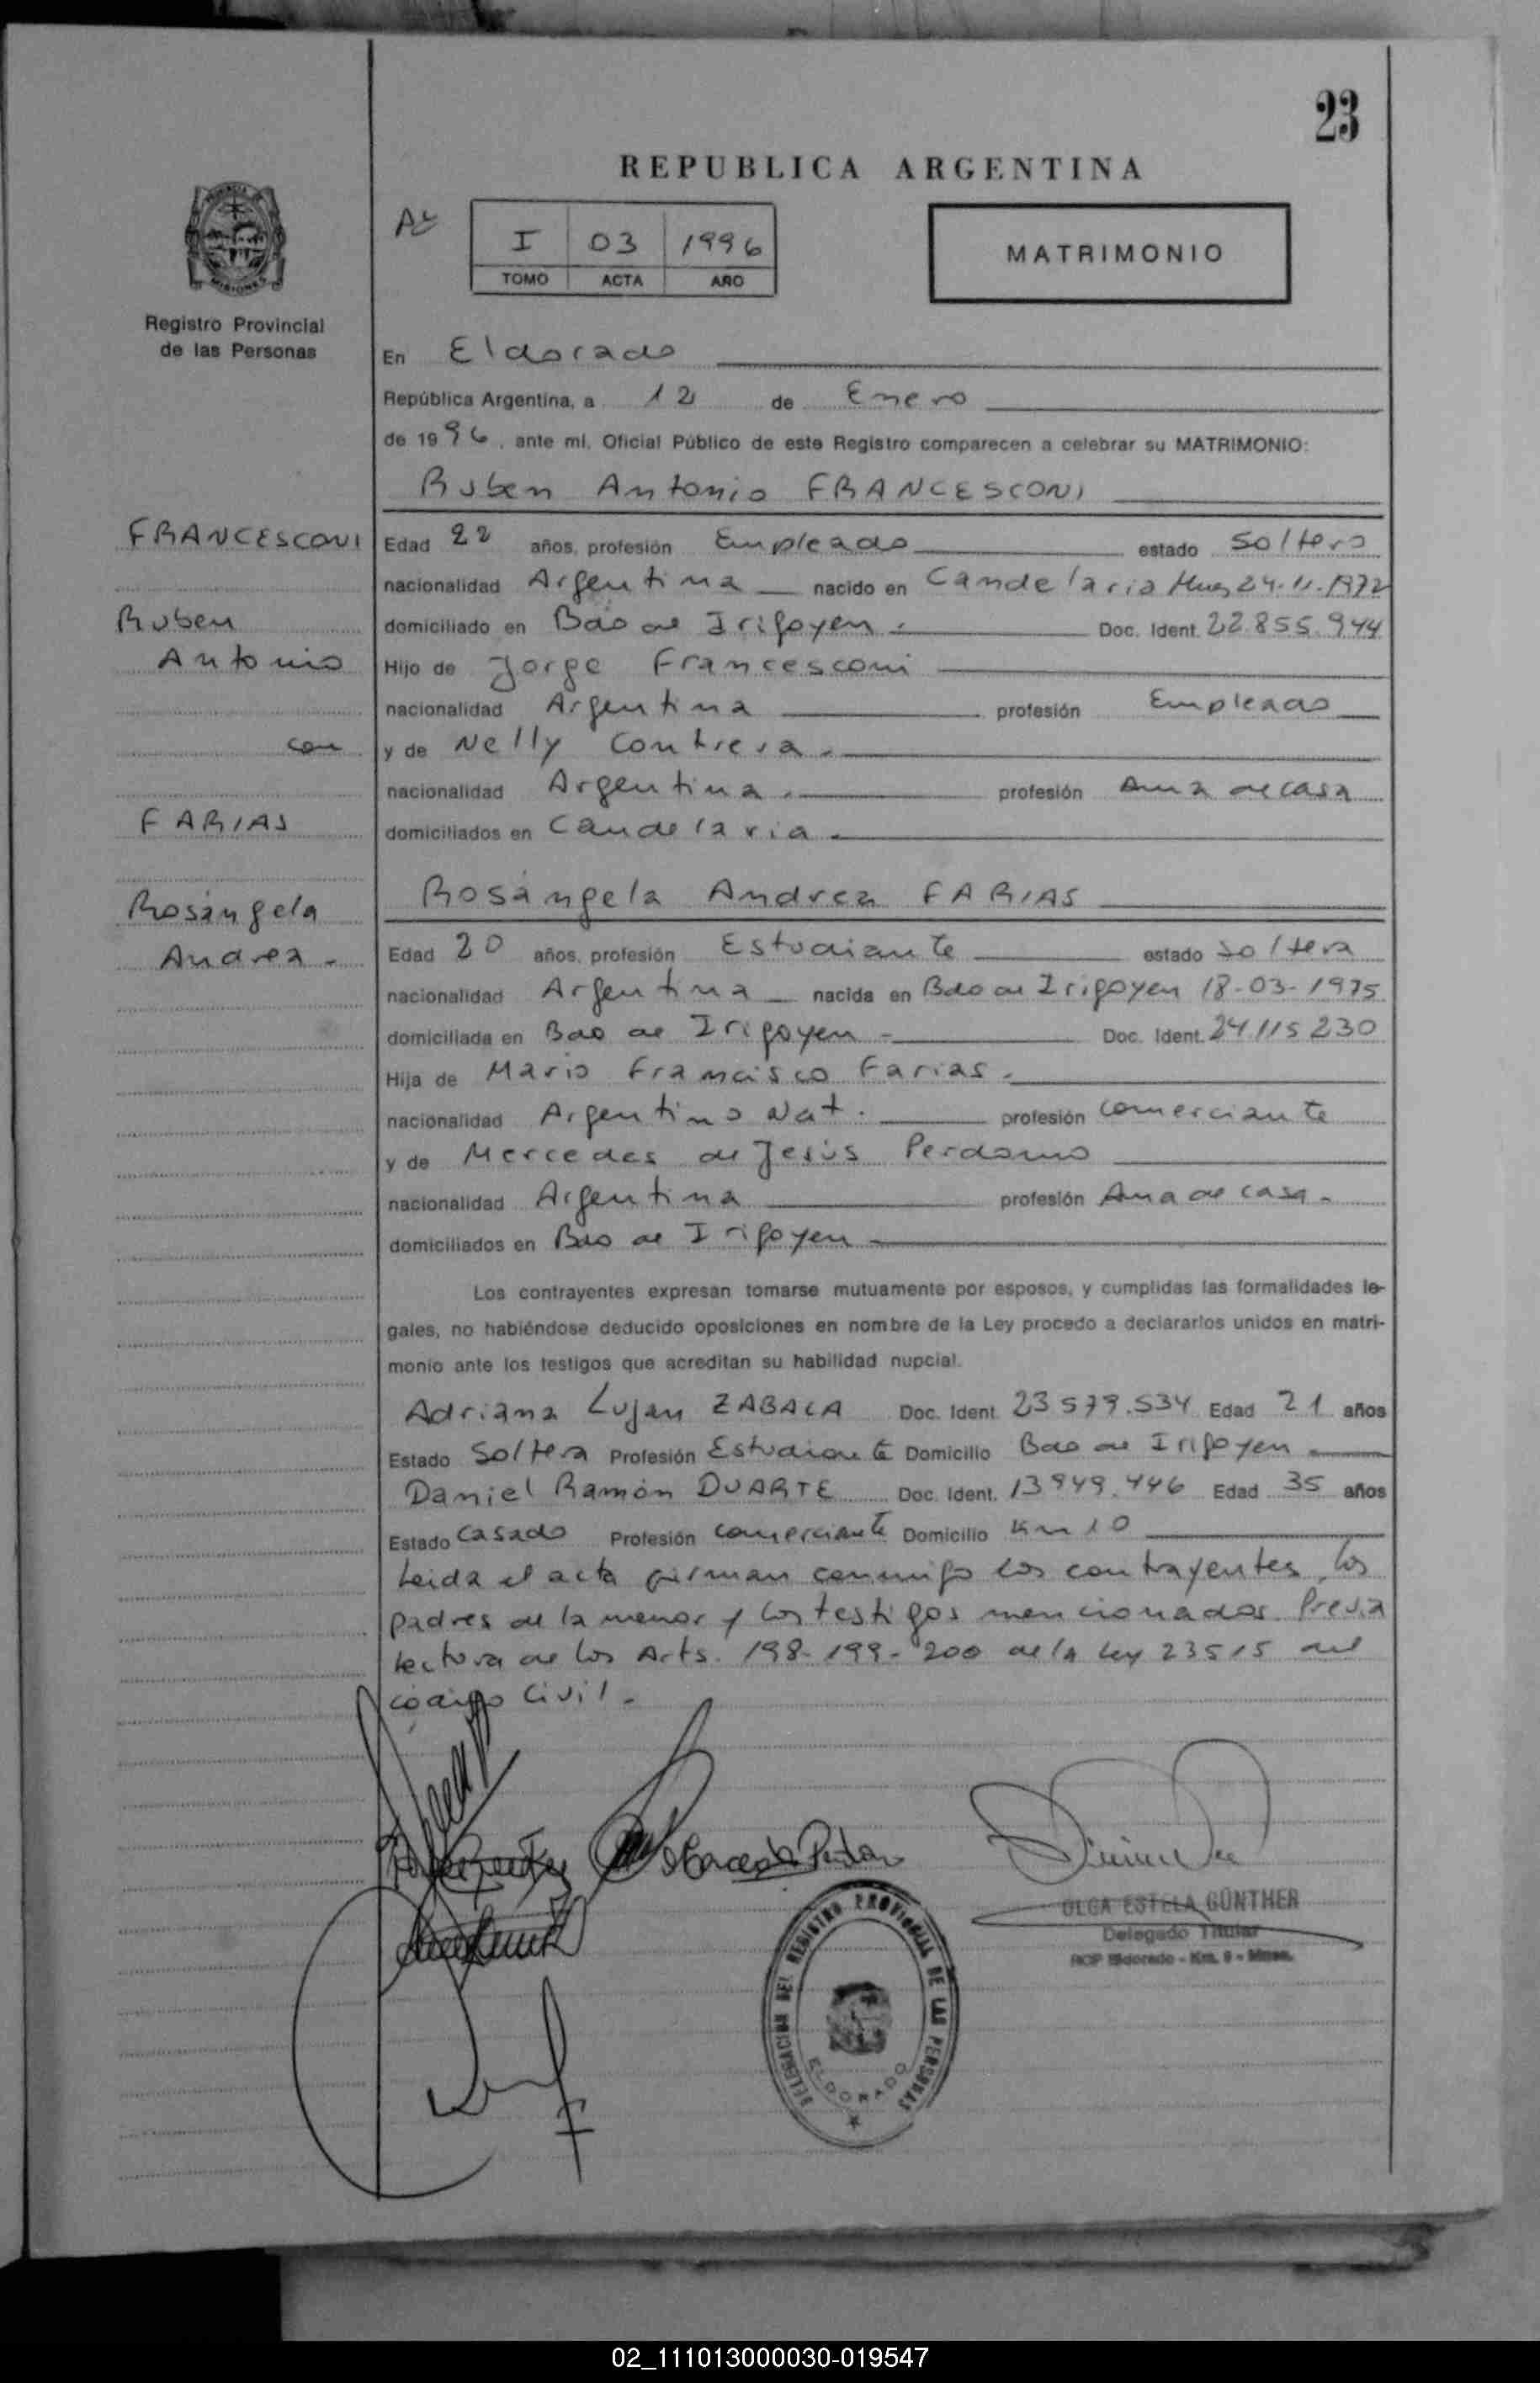 23
REPUBLICA ARGENTINA
I 03 1996
TOMO ACTA AÑO
MATRIMONIO
Registro Provincial
de las Personas
En Eldorado
República Argentina, a 12 de Enero
de 1996, ante mí, Oficial Público de este Registro comparecen a celebrar su MATRIMONIO:
Ruben Antonio FRANCESCONI
FRANCESCONI
Ruben
Antonio
con
FARIAS
Rosángela
Andrea.-
Edad 22 años, profesión Empleado estado Soltero
nacionalidad Argentina nacido en Candelaria Mnes 24-11-1972
domiciliado en Bdo de Irigoyen.- Doc. Ident. 22.855.944
Hijo de Jorge Francesconi
nacionalidad Argentina profesión Empleado
y de Nelly Contrera.
nacionalidad Argentina. profesión Ama de casa
domiciliados en Candelaria.
Rosángela Andrea FARIAS
Edad 20 años, profesión Estudiante estado Soltera
nacionalidad Argentina nacida en Bdo de Irigoyen 18-03-1975
domiciliada en Bdo de Irigoyen - Doc. Ident. 24.115.230
Hija de Mario Francisco Farias.
nacionalidad Argentino Nat. profesión comerciante
y de Mercedes de Jesús Perdomo
nacionalidad Argentina profesión Ama de casa.
domiciliados en Bdo de Irigoyen
Los contrayentes expresan tomarse mutuamente por esposos, y cumplidas las formalidades le-
gales, no habiéndose deducido oposiciones en nombre de la Ley procedo a declararlos unidos en matri-
monio ante los testigos que acreditan su habilidad nupcial.
Adriana Lujan ZABALA Doc. Ident. 23.579.534 Edad 21 años
Estado Soltera Profesión Estudiante Domicilio Bdo de Irigoyen
Daniel Ramón DUARTE Doc. Ident. 13.949.446 Edad 35 años
Estado Casado Profesión comerciante Domicilio Km 10
Leida el acta firman conmigo los contrayentes, los
padres de la menor y los testigos mencionados. Previa
lectura de los Arts. 198-199-200 de la Ley 23515 del
código Civil.-
OLGA ESTELA GÜNTHER
Delegado Titular
RCP Eldorado - Km. 9 - Mnes.
DELEGACION DEL REGISTRO PROVINCIAL DE LAS PERSONAS
ELDORADO
02_111013000030-019547